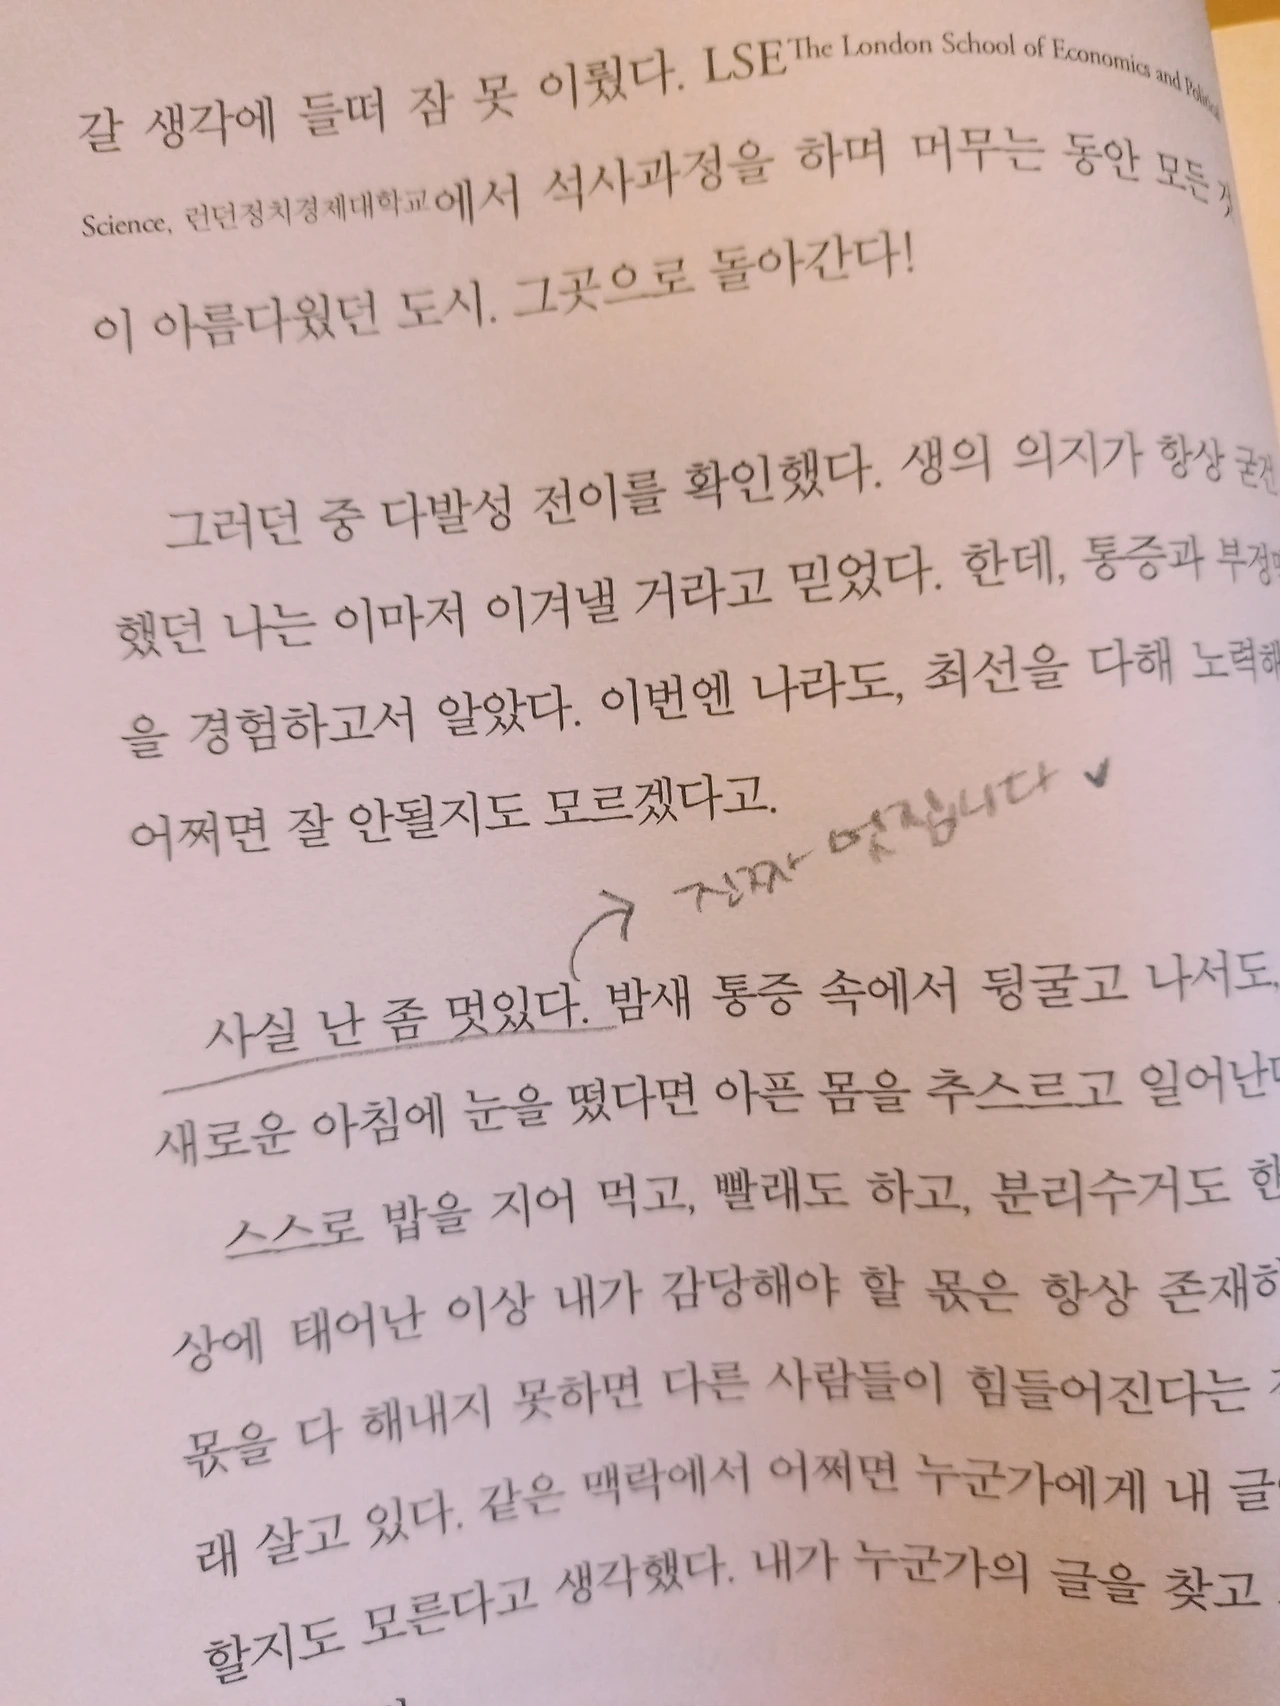 갈 생각에 들떠 잠 못 이뤘다. LSE The London School of Economics and Political
Science, 런던정치경제대학교에서 석사과정을 하며 머무는 동안 모든 것
이 아름다웠던 도시. 그곳으로 돌아간다!
그러던 중 다발성 전이를 확인했다. 생의 의지가 항상 굳건
했던 나는 이마저 이겨낼 거라고 믿었다. 한데, 통증과
을 경험하고서 알았다. 이번엔 나라도, 최선을 다해 노력해
어쩌면 잘 안될지도 모르겠다고.
진짜 멋집니다
사실 난 좀 멋있다. 밤새 통증 속에서 뒹굴고 나서도,
새로운 아침에 눈을 떴다면 아픈 몸을 추스르고 일어난
스스로 밥을 지어 먹고, 빨래도 하고, 분리수거도
상에 태어난 이상 내가 감당해야 할 몫은 항상 존재하
몫을 다 해내지 못하면 다른 사람들이 힘들어진다는
래 살고 있다. 같은 맥락에서 어쩌면 누군가에게 내 글
할지도 모른다고 생각했다. 내가 누군가의 글을 찾고